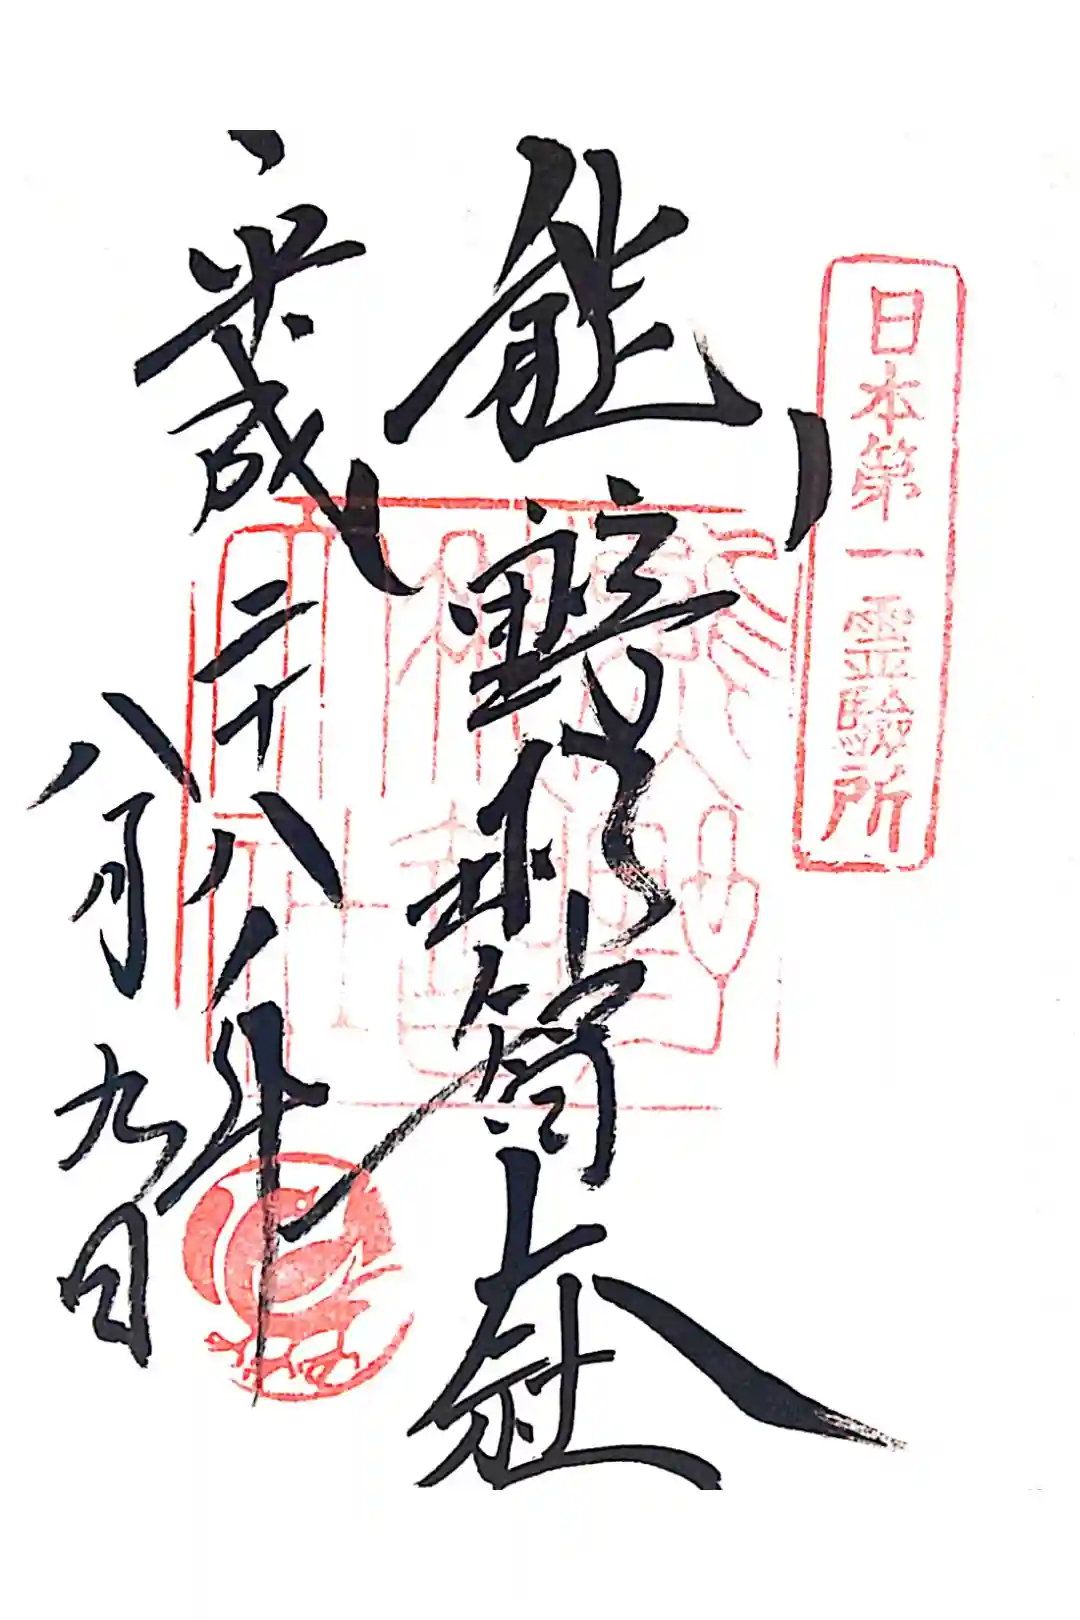 日本第一霊驗所
熊野那智大社
平成二十八年
八月九日